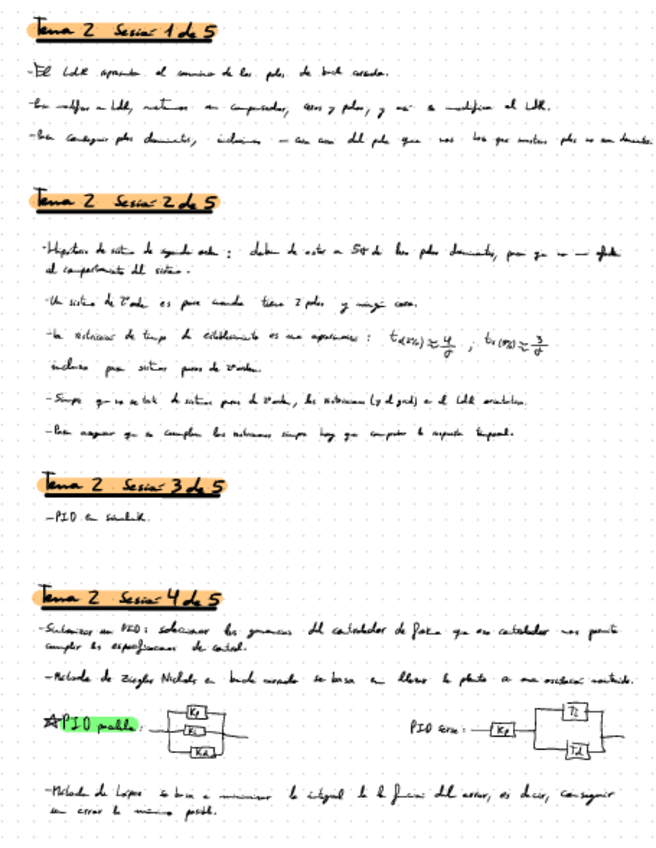 Tema 2 Sesión 1 de 5
- El LdR representa el camino de los polos de bucle cerrado.
- Para modificar el LdR, metemos un compensador, ceros y polos, y así se modifica el LdR.
- Para conseguir polos dominantes, incluimos un cero cerca del polo que nos hace que nuestros polos no sean dominantes.
Tema 2 Sesión 2 de 5
- Hipótesis de sistema de segundo orden: deben de estar a 5σ de los polos dominantes, para que no afecte
al comportamiento del sistema.
- Un sistema de 2º orden es puro cuando tiene 2 polos y ningún cero.
- La restricción de tiempo de establecimiento es una aproximación: ts(2%) ≈ 4/σ ; ts(5%) ≈ 3/σ
incluso para sistemas puros de 2º orden.
- Siempre que no se trate de sistemas puros de 2º orden, las restricciones (y el grid) en el LdR orientativas.
- Para asegurar que se cumplen las restricciones siempre hay que comprobar la respuesta temporal.
Tema 2 Sesión 3 de 5
- PID en simulink.
Tema 2 Sesión 4 de 5
- Sintonizar un PID: seleccionar las ganancias del controlador de forma que ese controlador nos permita
cumplir las especificaciones de control.
- Método de Ziegler Nichols en bucle cerrado se basa en llevar la planta a una oscilación mantenida.
☆ PID paralelo: Kp Ki Kd PID serie: Kp Ti Td
- Método de López se basa a minimizar la integral de la función del error, es decir, conseguir
un error lo mínimo posible.